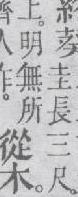 圭長三尺
上。明無所
人作。
從木。